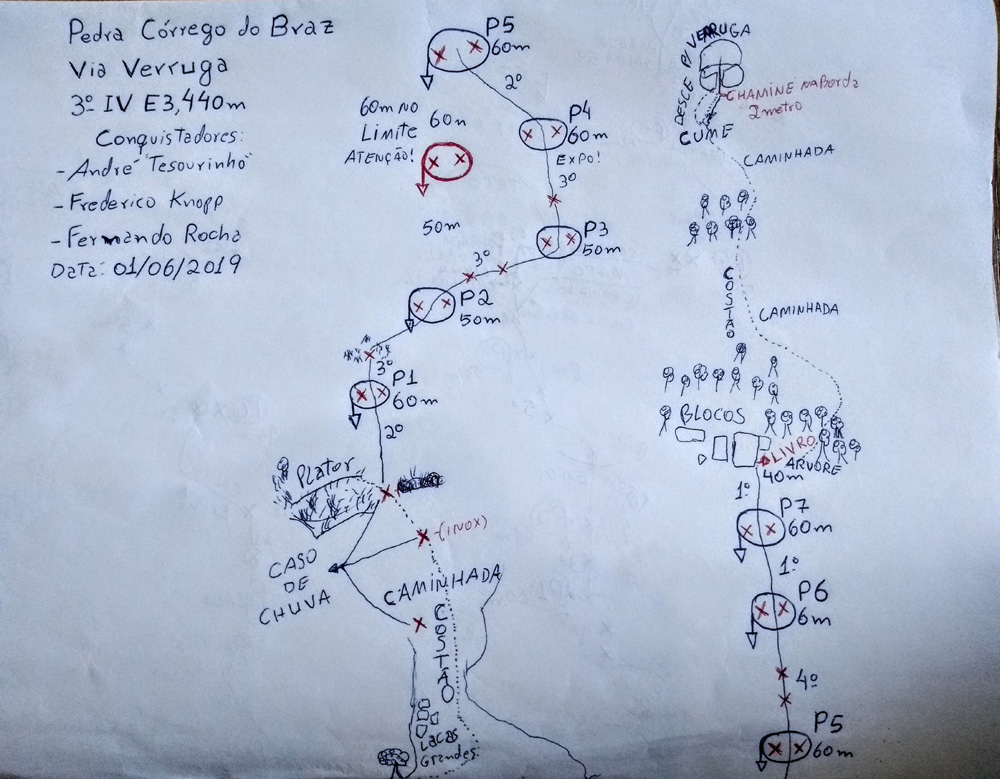 Pedra Córrego do Braz
Via Verruga
3º IV E3, 440m
Conquistadores:
- André "Tesourinho"
- Frederico Knopp
- Fernando Rocha
Data: 01/06/2019
P5
60m
2º
60m no
Limite
ATENÇÃO!
60m
P4
60m
EXPO!
3º
50m
P3
50m
3º
P2
50m
3º
P1
60m
2º
Plator
(INOX)
CASO
DE
CHUVA
CAMINHADA
COSTÃO
Lacas
Grandes
VERRUGA
DESCE P/
CHAMINE na Borda
2 metro
CUME
CAMINHADA
COSTÃO
CAMINHADA
BLOCOS
LIVRO
ARVORE
40m
1º
P7
60m
1º
P6
6m
4º
P5
60m